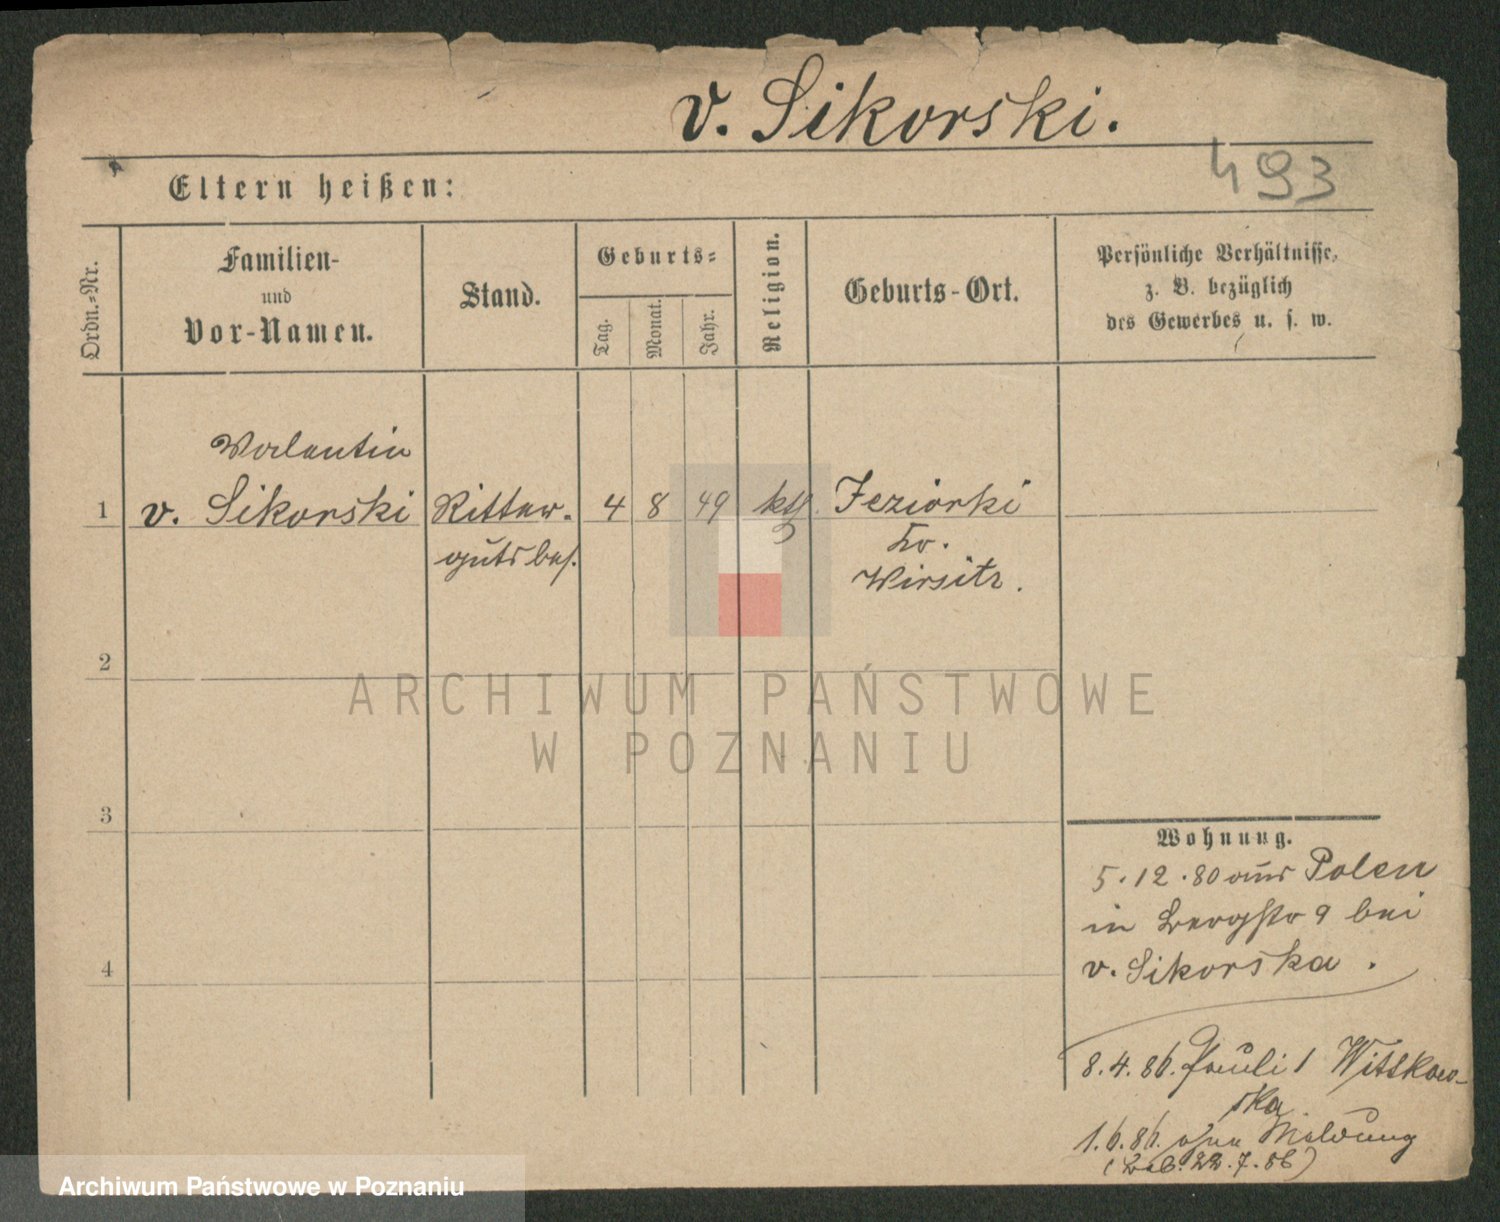 v. Sikorski.
493
Eltern heißen:
Ordn.-Nr.
Familien-
und
Vor-Namen.
Stand.
Geburts-
Tag.
Monat.
Jahr.
Religion.
Geburts-Ort.
Persönliche Verhältnisse,
z. B. bezüglich
des Gewerbes u. s. w.
Valentin
1 v. Sikorski Ritter- 4 8 49 kth. Jeziorki
gutsbes. Kr.
Wirsitz.
2
3
4
Wohnung.
5.12.80 aus Polen
in Bergstr 9 bei
v. Sikorska.
8.4.86. Pauli 1 Wittkow-
ska
1.6.86. ohne Meldung
22.7.86)
ARCHIWUM PAŃSTWOWE
W POZNANIU
Archiwum Państwowe w Poznaniu